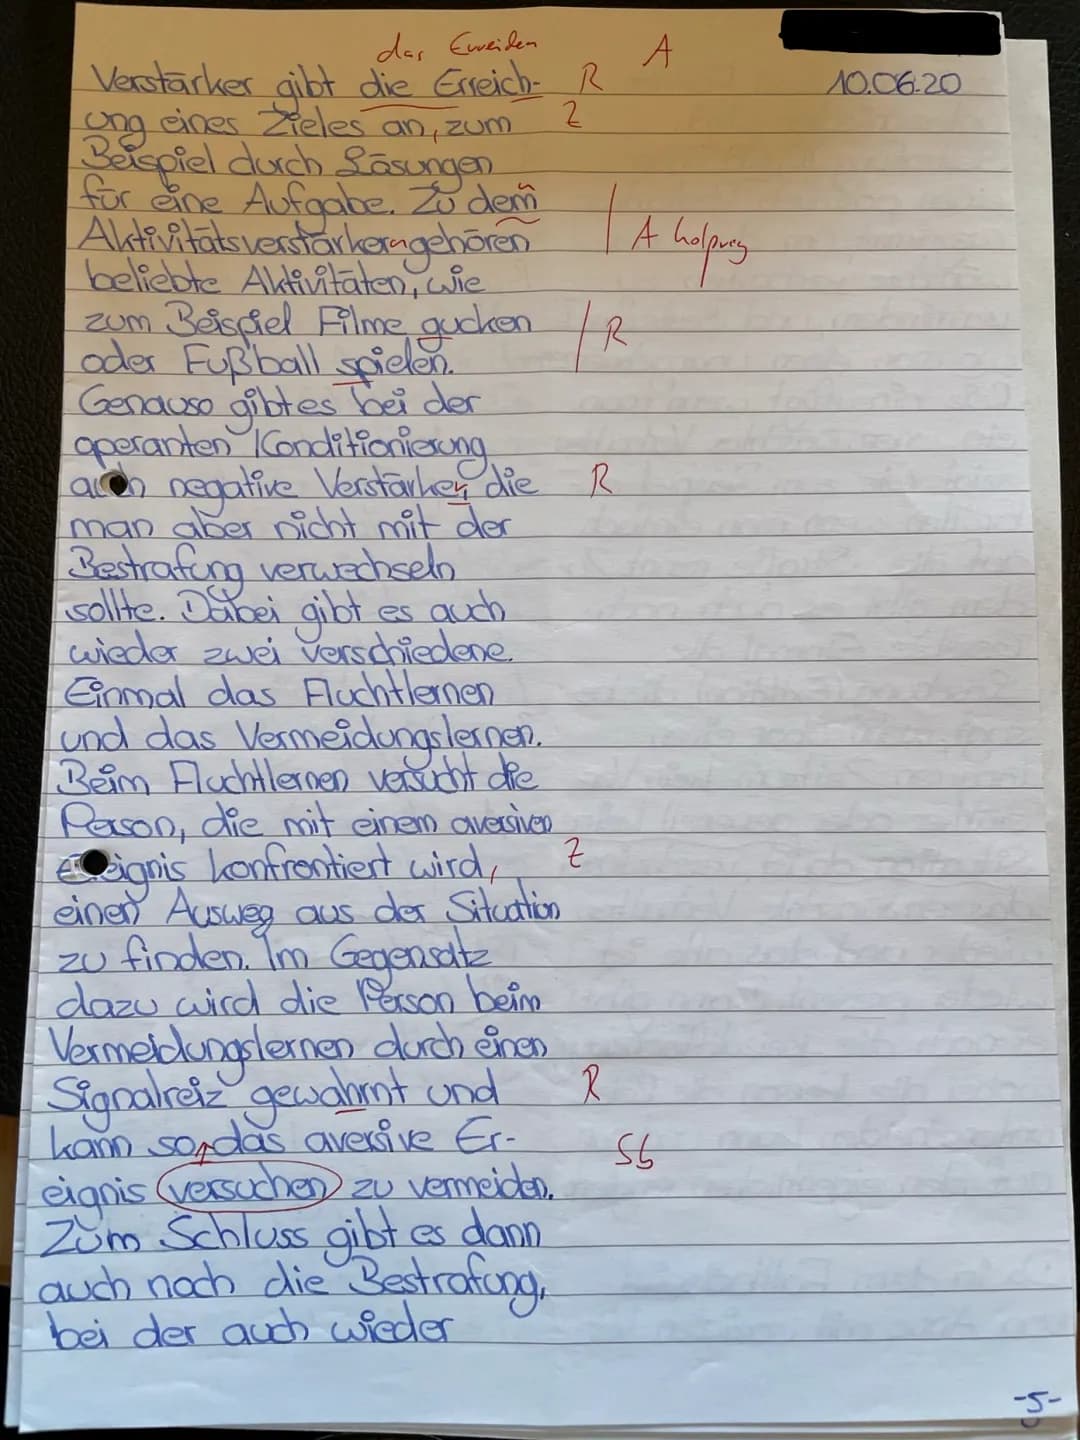 das Erreichen A
Verstärker gibt die Erreich- R 10.06.20
ung eines Zieles an, zum Z
Beispiel durch Lösungen
für eine Aufgabe. Zu dem n
Aktivitätsverstärkern gehören A holprig
beliebte Aktivitäten, wie
zum Beispiel Filme gucken R
oder Fußball spielen.
Genauso gibt es bei der
operanten Konditionierung
auch negative Verstärker, die R
man aber nicht mit der
Bestrafung verwechseln
sollte. Dabei gibt es auch
wieder zwei verschiedene.
Einmal das Fluchtlernen
und das Vermeidungslernen.
Beim Fluchtlernen versucht die
Person, die mit einem aversiven
Ereignis konfrontiert wird, Z
einen Ausweg aus der Situation
zu finden. Im Gegensatz
dazu wird die Person beim
Vermeidungslernen durch einen
Signalreiz gewahrnt und R
kann so das aversive Er- Sb
eignis versuchen zu vermeiden.
Zum Schluss gibt es dann
auch noch die Bestrafung,
bei der auch wieder
-5-